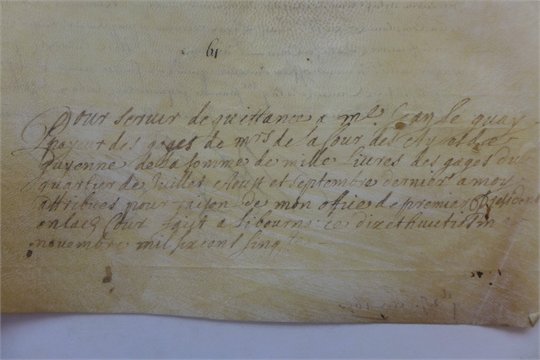 61
Pour servir de quittance a mr Jean le quay
payeur des gages de mrs de la Cour des Aydes de
guyenne de la somme de mille livres des gages du
quartier de Juillet Aoust et septembre dernier a moy
attribues pour raison de mon office de premier President
en lad Cour fait a Libourne ce dixe huitiesme
novembre mil six cent sinq